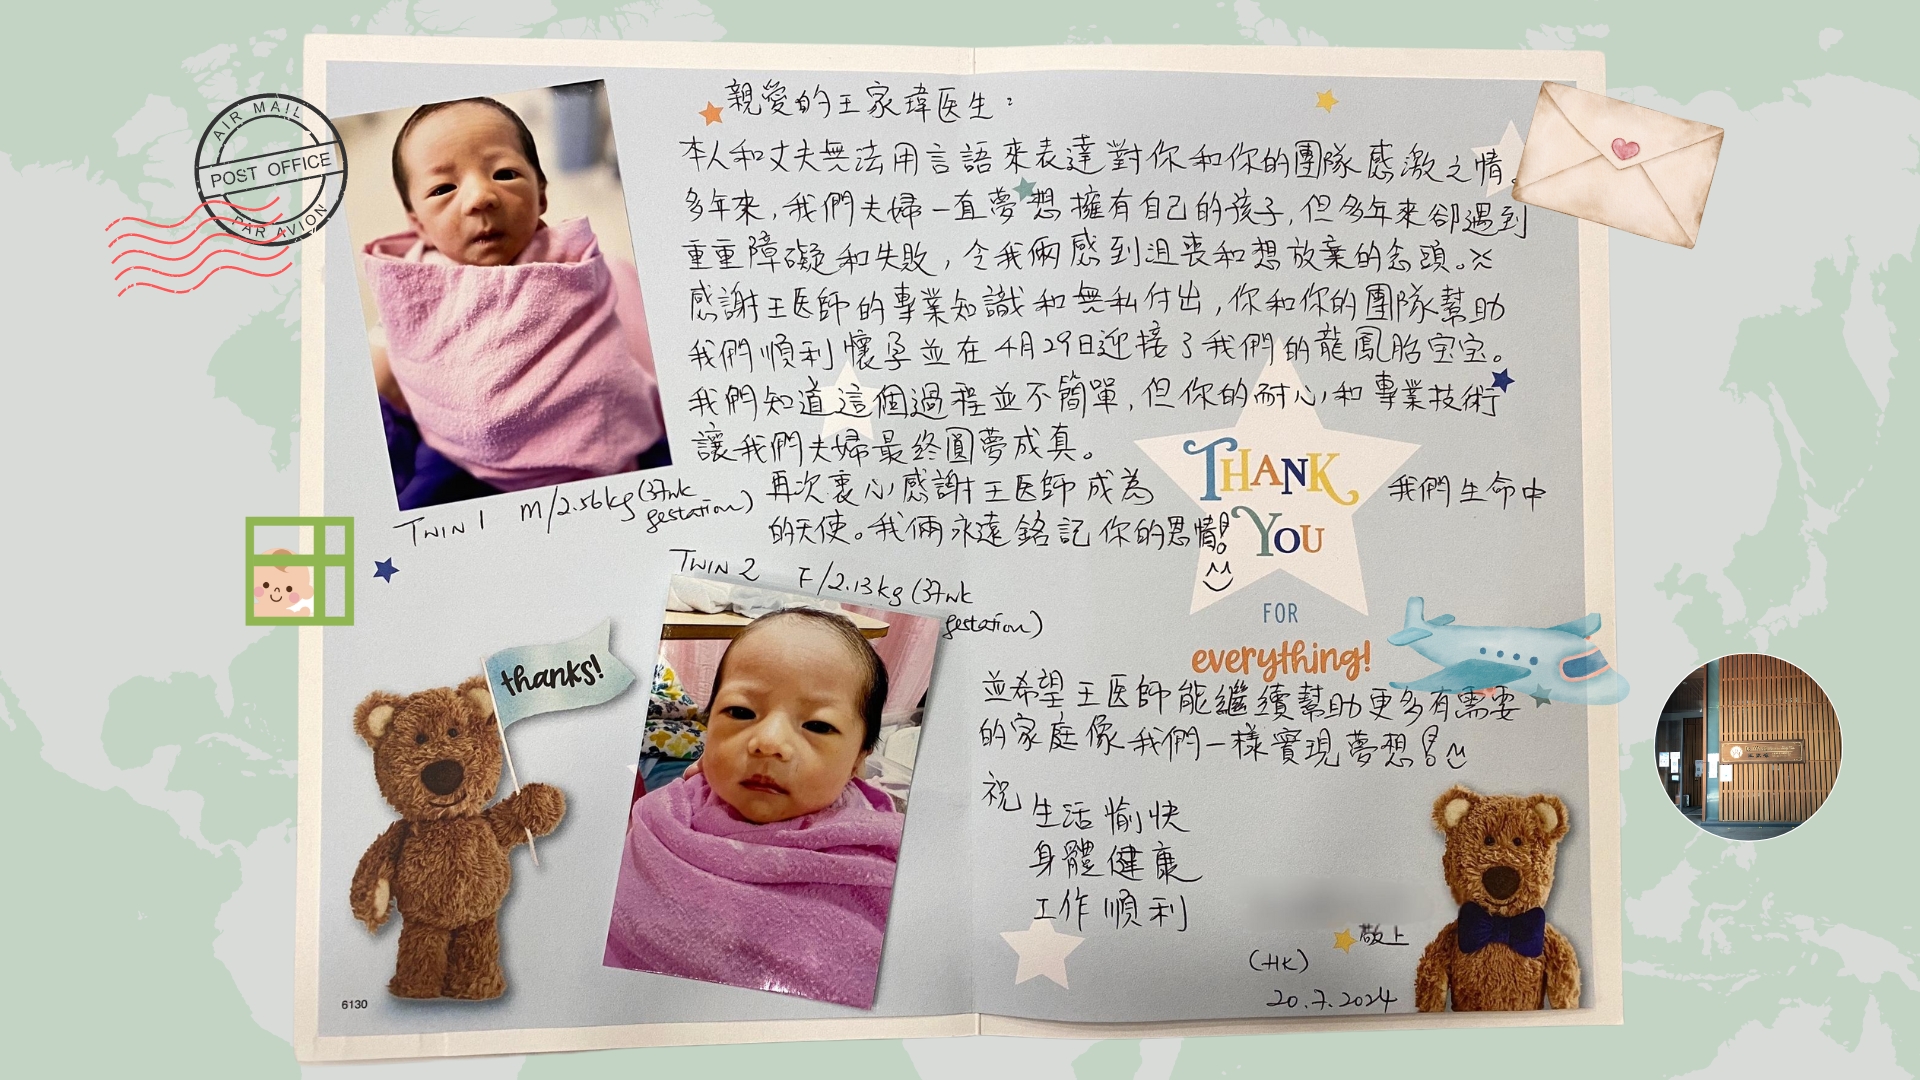 AIR MAIL
POST OFFICE
PAR AVION
親愛的王家瑋医生：
本人和丈夫無法用言語來表達對你和你的團隊感激之情。
多年來，我們夫婦一直夢想擁有自己的孩子，但多年來卻遇到
重重障礙和失敗，令我倆感到沮喪和想放棄的念頭。
感謝王医師的專業知識和無私付出，你和你的團隊幫助
我們順利懷孕並在4月29日迎接了我們的龍鳳胎宝宝。
我們知道這個過程並不簡單，但你的耐心和專業技術
讓我們夫婦最終圓夢成真。
再次衷心感謝王医師成為 我們生命中
的天使。我倆永遠銘記你的恩情!
THANK
YOU
FOR
everything!
TWIN 1 M/2.56kg (37wk
gestation)
TWIN 2 F/2.13kg (37wk
gestation)
thanks!
並希望王医師能繼續幫助更多有需要
的家庭像我們一樣實現夢想!
祝
生活愉快
身體健康
工作順利
敬上
(HK)
20.7.2024
6130